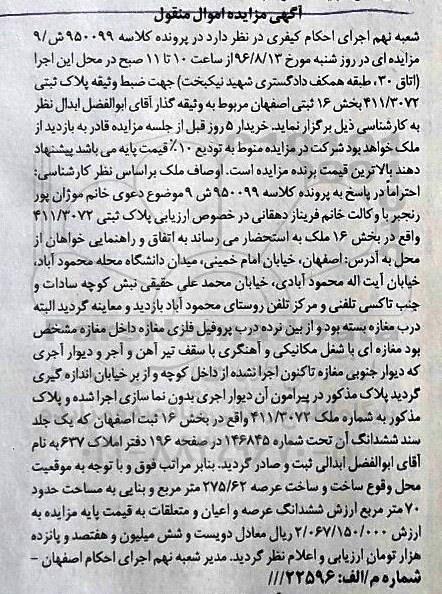 آگهی مزایده اموال منقول
شعبه نهم اجرای احکام کیفری در نظر دارد در پرونده کلاسه ۹۵۰۰۹۹ش/۹
مزایده ای در روز شنبه مورخ ۹۶/۸/۱۳از ساعت ۱۰ تا ۱۱ صبح در محل این اجرا
(اتاق ۳۰، طبقه همکف دادگستری شهید نیکبخت) جهت ضبط وثیقه پلاک ثبتی
۴۱۱/۳۰۷۲ بخش ۱۶ ثبتی اصفهان مربوط به وثیقه گذار آقای ابوالفضل ابدال نظر
به کارشناسی ذیل برگزار نماید. خریدار ۵ روز قبل از جلسه مزایده قادر به بازدید از
ملک خواهد بود شرکت در مزایده منوط به تودیع ۱۰٪ قیمت پایه می باشد پیشنهاد
دهنده بالاترین قیمت برنده مزایده است. اوصاف ملک براساس نظر کارشناسی:
احتراماً در پاسخ به پرونده کلاسه ۹۵۰۰۹۹ ش ۹ موضوع دعوی خانم موژان پور
رنجبر با وکالت خانم فریناز دهقانی در خصوص ارزیابی پلاک ثبتی ۴۱۱/۳۰۷۲
واقع در بخش ۱۶ ملک به استحضار می رساند به اتفاق و راهنمایی خواهان از
محل به آدرس: اصفهان، خیابان امام خمینی، میدان دانشگاه محله محمود آباد،
خیابان آیت اله محمود آبادی، خیابان محمد علی حقیقی نبش کوچه سادات و
جنب تاکسی تلفنی و مرکز تلفن روستای محمود آباد بازدید و معاینه گردید البته
درب مغازه بسته بود و از بین نرده درب پروفیل فلزی مغازه داخل مغازه مشخص
بود مغازه ای با شغل مکانیکی و آهنگری با سقف تیر آهن و آجر و دیوار آجری
که دیوار جنوبی مغازه تاکنون اجرا نشده از داخل کوچه و از بر خیابان اندازه گیری
گردید پلاک مذکور در پیرامون آن دیوار اجری بدون نما سازی اجرا شده و پلاک
مذکور به شماره ملک ۴۱۱/۳۰۷۲ واقع در بخش ۱۶ ثبت اصفهان که یک جلد
سند ششدانگ آن تحت شماره ۱۴۶۸۴۵ در صفحه ۱۹۶ دفتر املاک ۶۳۷ به نام
آقای ابوالفضل ابدالی ثبت و صادر گردید. بنابر مراتب فوق و با توجه به موقعیت
محل وقوع ساخت و ساخت عرصه ۲۷۵/۶۲ متر مربع و بنایی به مساحت حدود
۷۰ متر مربع ارزش ششدانگ عرصه و اعیان و متعلقات به قیمت پایه مزایده به
ارزش ۲/۰۶۷/۱۵۰/۰۰۰ ریال معادل دویست و شش میلیون و هفتصد و پانزده
هزار تومان ارزیابی و اعلام نظر گردید. مدیر شعبه نهم اجرای احکام اصفهان -
شماره م/الف: ۲۲۵۹۶///